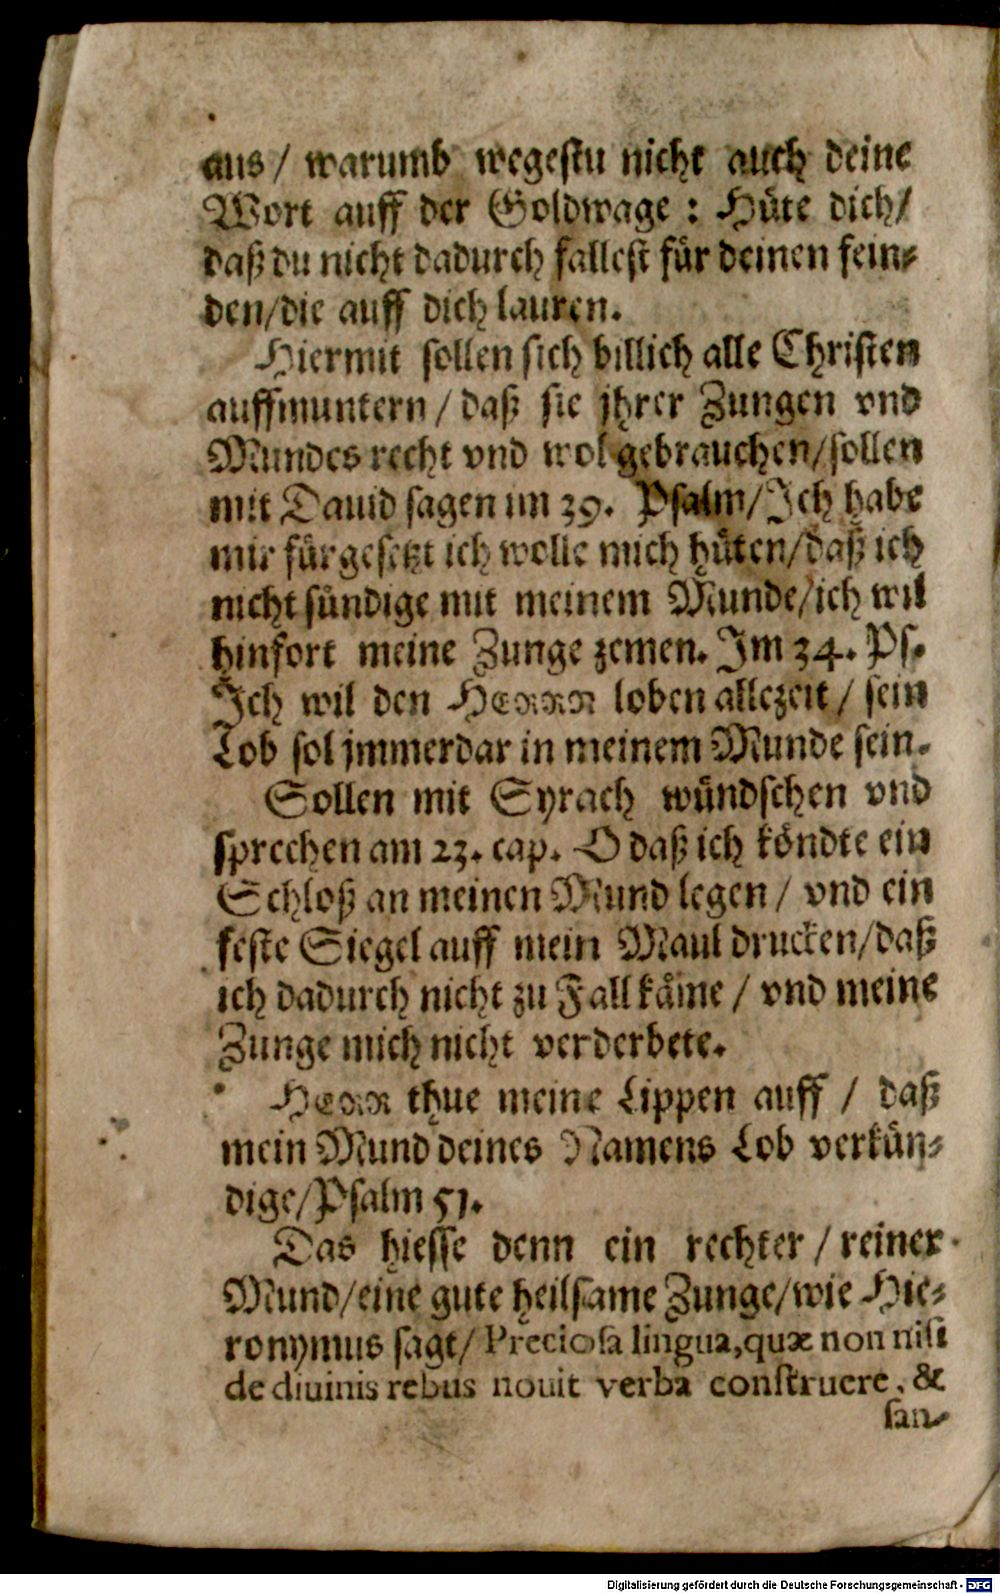 aus / warumb wegestu nicht auch deine
Wort auff der Goldwage : Hüte dich/
daß du nicht dadurch fallest für deinen fein⸗
den/die auff dich lauren.
Hiermit sollen sich billich alle Christen
auffmuntern / daß sie jhrer Zungen vnd
Mundes recht vnd wol gebrauchen/sollen
mit Dauid sagen im 39. Psalm/Ich habe
mir fürgesetzt ich wolle mich hüten/daß ich
nicht sündige mit meinem Munde/ich wil
hinfort meine Zunge zemen. Im 34. Ps.
Ich wil den HERRN loben allezeit / sein
Lob sol jmmerdar in meinem Munde sein.
Sollen mit Syrach wündschen vnd
sprechen am 23. cap. O daß ich köndte ein
Schloß an meinen Mund legen / vnd ein
feste Siegel auff mein Maul drucken/daß
ich dadurch nicht zu Fall käme / vnd meine
Zunge mich nicht verderbete.
HERR thue meine Lippen auff / daß
mein Mund deines Namens Lob verkün⸗
dige/Psalm 51.
Das hiesse denn ein rechter / reiner
Mund/eine gute heilsame Zunge/wie Hie⸗
ronymus sagt/ Preciosa lingua,quæ non nisi
de diuinis rebus nouit verba construere, &
san⸗
Digitalisierung gefördert durch die Deutsche Forschungsgemeinschaft - DFG